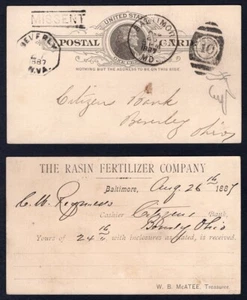 MISSENT
BEVERLY
887
W.VA.
UNITED STATES
BALTIMORE
MD.
10
POSTAL CARD
NOTHING BUT THE ADDRESS TO BE ON THIS SIDE.
Citizens Bank
Beverly
Ohio
THE RASIN FERTILIZER COMPANY
Baltimore, Aug 26th 1887
C. W. Reynolds
Cashier Citizens Bank,
Beverly Ohio
Yours of 24th with inclosures as stated, is received.
W. B. McATEE, Treasurer.